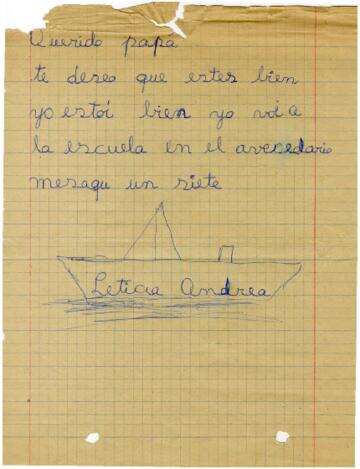 Querido papa
te deseo que estes bien
yo estoi bien yo voi a
la escuela en el avecedario
mesaqu un siete
Leticia Andrea